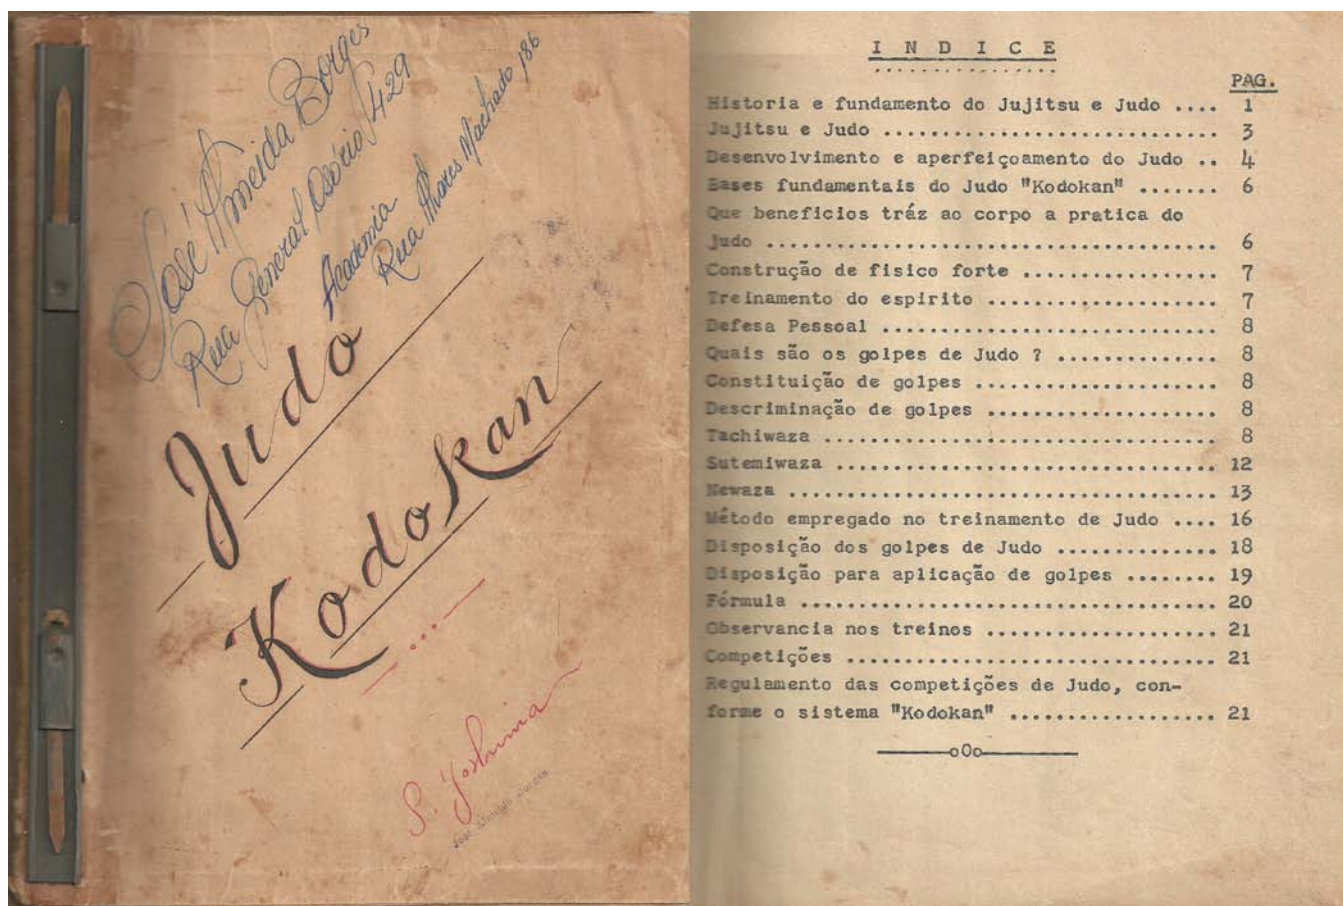 José Almeida Borges
Rua General Osório 429
Academia
Rua Alvares Machado 186
Judo
Kodokan
S. Yoshima
José Almeida Borges
I N D I C E
PAG.
Historia e fundamento do Jujitsu e Judo .... 1
Jujitsu e Judo ............................. 3
Desenvolvimento e aperfeiçoamento do Judo .. 4
Bases fundamentais do Judo "Kodokan" ....... 6
Que beneficios tráz ao corpo a pratica do
judo ....................................... 6
Construção de fisico forte ................. 7
Treinamento do espirito .................... 7
Defesa Pessoal ............................. 8
Quais são os golpes de Judo ? .............. 8
Constituição de golpes ..................... 8
Descriminação de golpes .................... 8
Tachiwaza .................................. 8
Sutemiwaza ................................. 12
Newaza ..................................... 13
Método empregado no treinamento de Judo .... 16
Disposição dos golpes de Judo .............. 18
Disposição para aplicação de golpes ........ 19
Fórmula .................................... 20
Observancia nos treinos .................... 21
Competições ................................ 21
Regulamento das competições de Judo, con-
forme o sistema "Kodokan" .................. 21
o0o